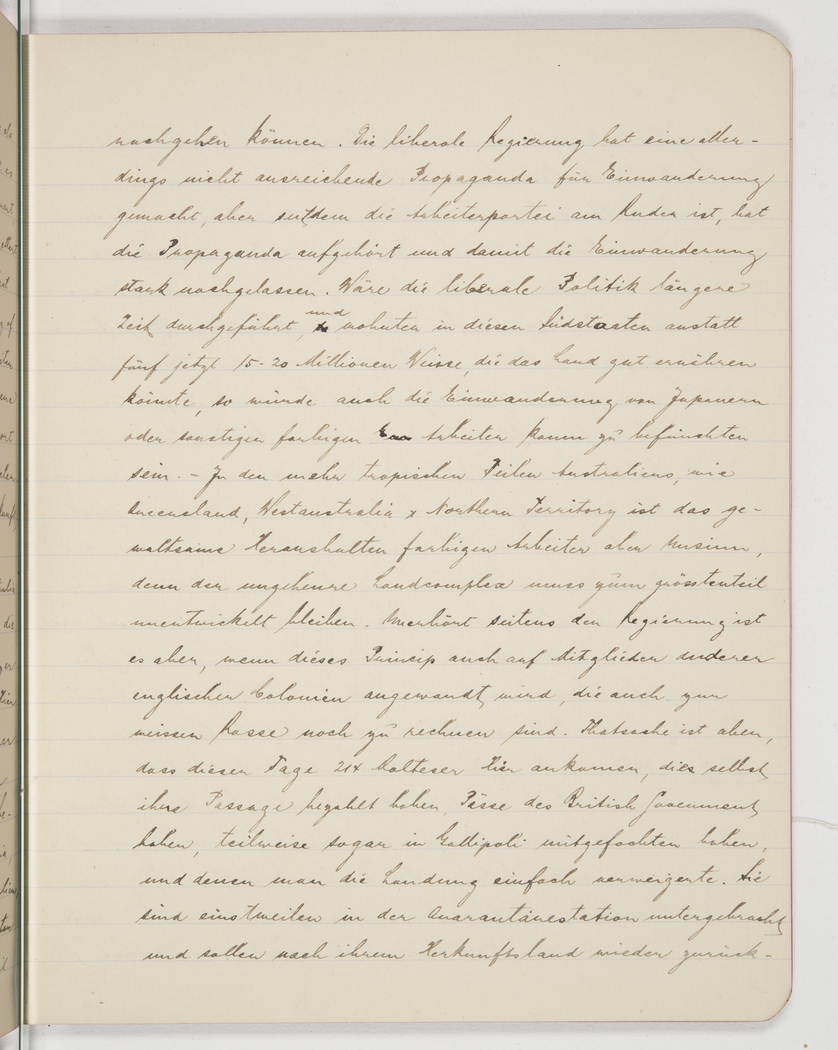 nachgehen können. Die liberale Regierung hat eine aller-
dings nicht ausreichende Propaganda für Einwanderung
gemacht, aber seitdem die Arbeiterpartei am Ruder ist, hat
die Propaganda aufgehört und damit die Einwanderung
stark nachgelassen. Wäre die liberale Politik längere
Zeit durchgeführt, und wohnten in diesen Südstaaten anstatt
fünf jetzt 15-20 Millionen Weisse, die das Land gut ernähren
könnte, so würde auch die Einwanderung von Japanern
oder sonstigen farbigen Arbeiter kaum zu befürchten
sein. - In den mehr tropischen Teilen Australiens, wie
Queensland, Westaustralia & Northern Territory ist das ge-
waltsame Heraushalten farbigen Arbeiter aber Unsinn,
denn der ungeheure Landcomplex muss zum grösstenteil
unentwickelt bleiben. Unerhört seitens der Regierung ist
es aber, wenn dieses Princip auch auf Mitglieder anderer
englischer Colonien angewandt wird, die auch zur
weissen Rasse noch zu rechnen sind. Thatsache ist aber,
dass dieser Tage 214 Malteser hier ankamen, die selbst
ihre Passage bezahlt haben, Pässe des British Government
haben, teilweise sogar in Gallipoli mitgefochten haben,
und denen man die Landung einfach verweigerte. Sie
sind einstweilen in der Quarantänestation untergebracht
und sollen nach ihrem Herkunftsland wieder zurück-